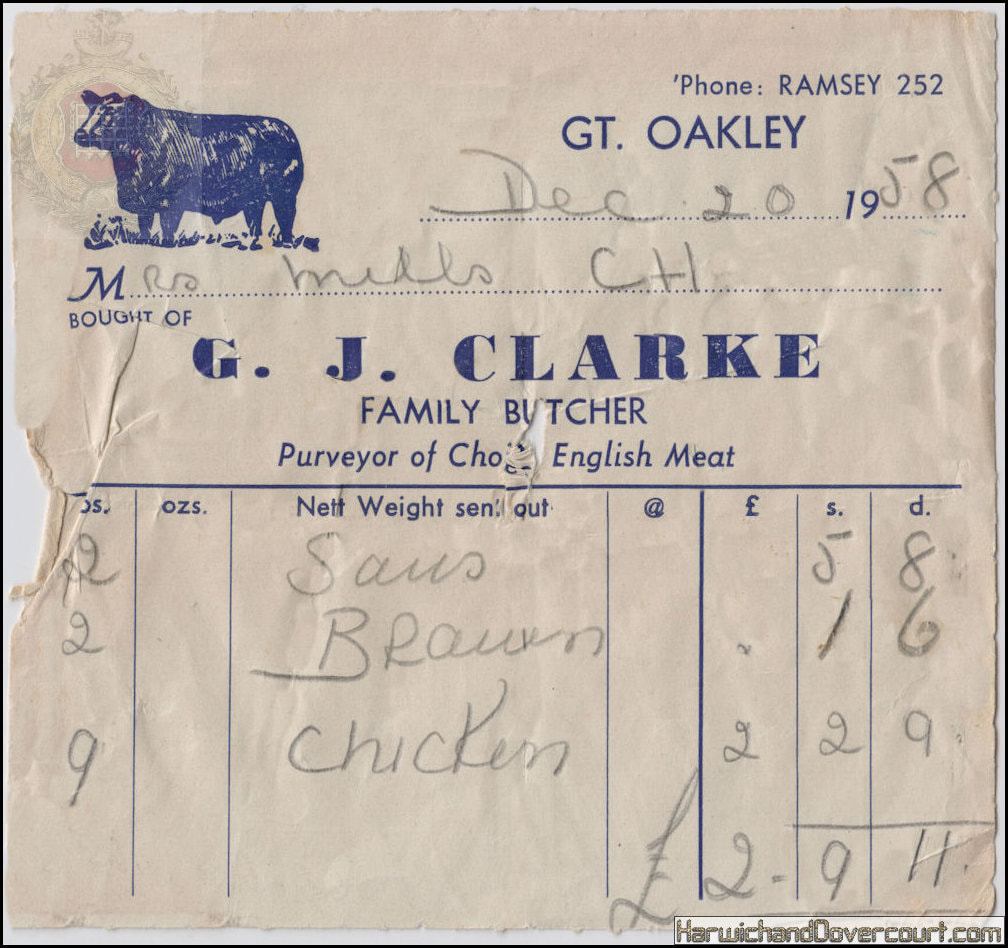 'Phone: RAMSEY 252
GT. OAKLEY
Dec 20 1958
Mrs Mills CH
BOUGHT OF
G. J. CLARKE
FAMILY BUTCHER
Purveyor of Choice English Meat
lbs. ozs. Nett Weight sent out @ £ s. d.
2 Saus 5 8
2 Brawn . 1 6
9 Chicken 2 2 9
£ 2 - 9 11.
HarwichandDovercourt.com